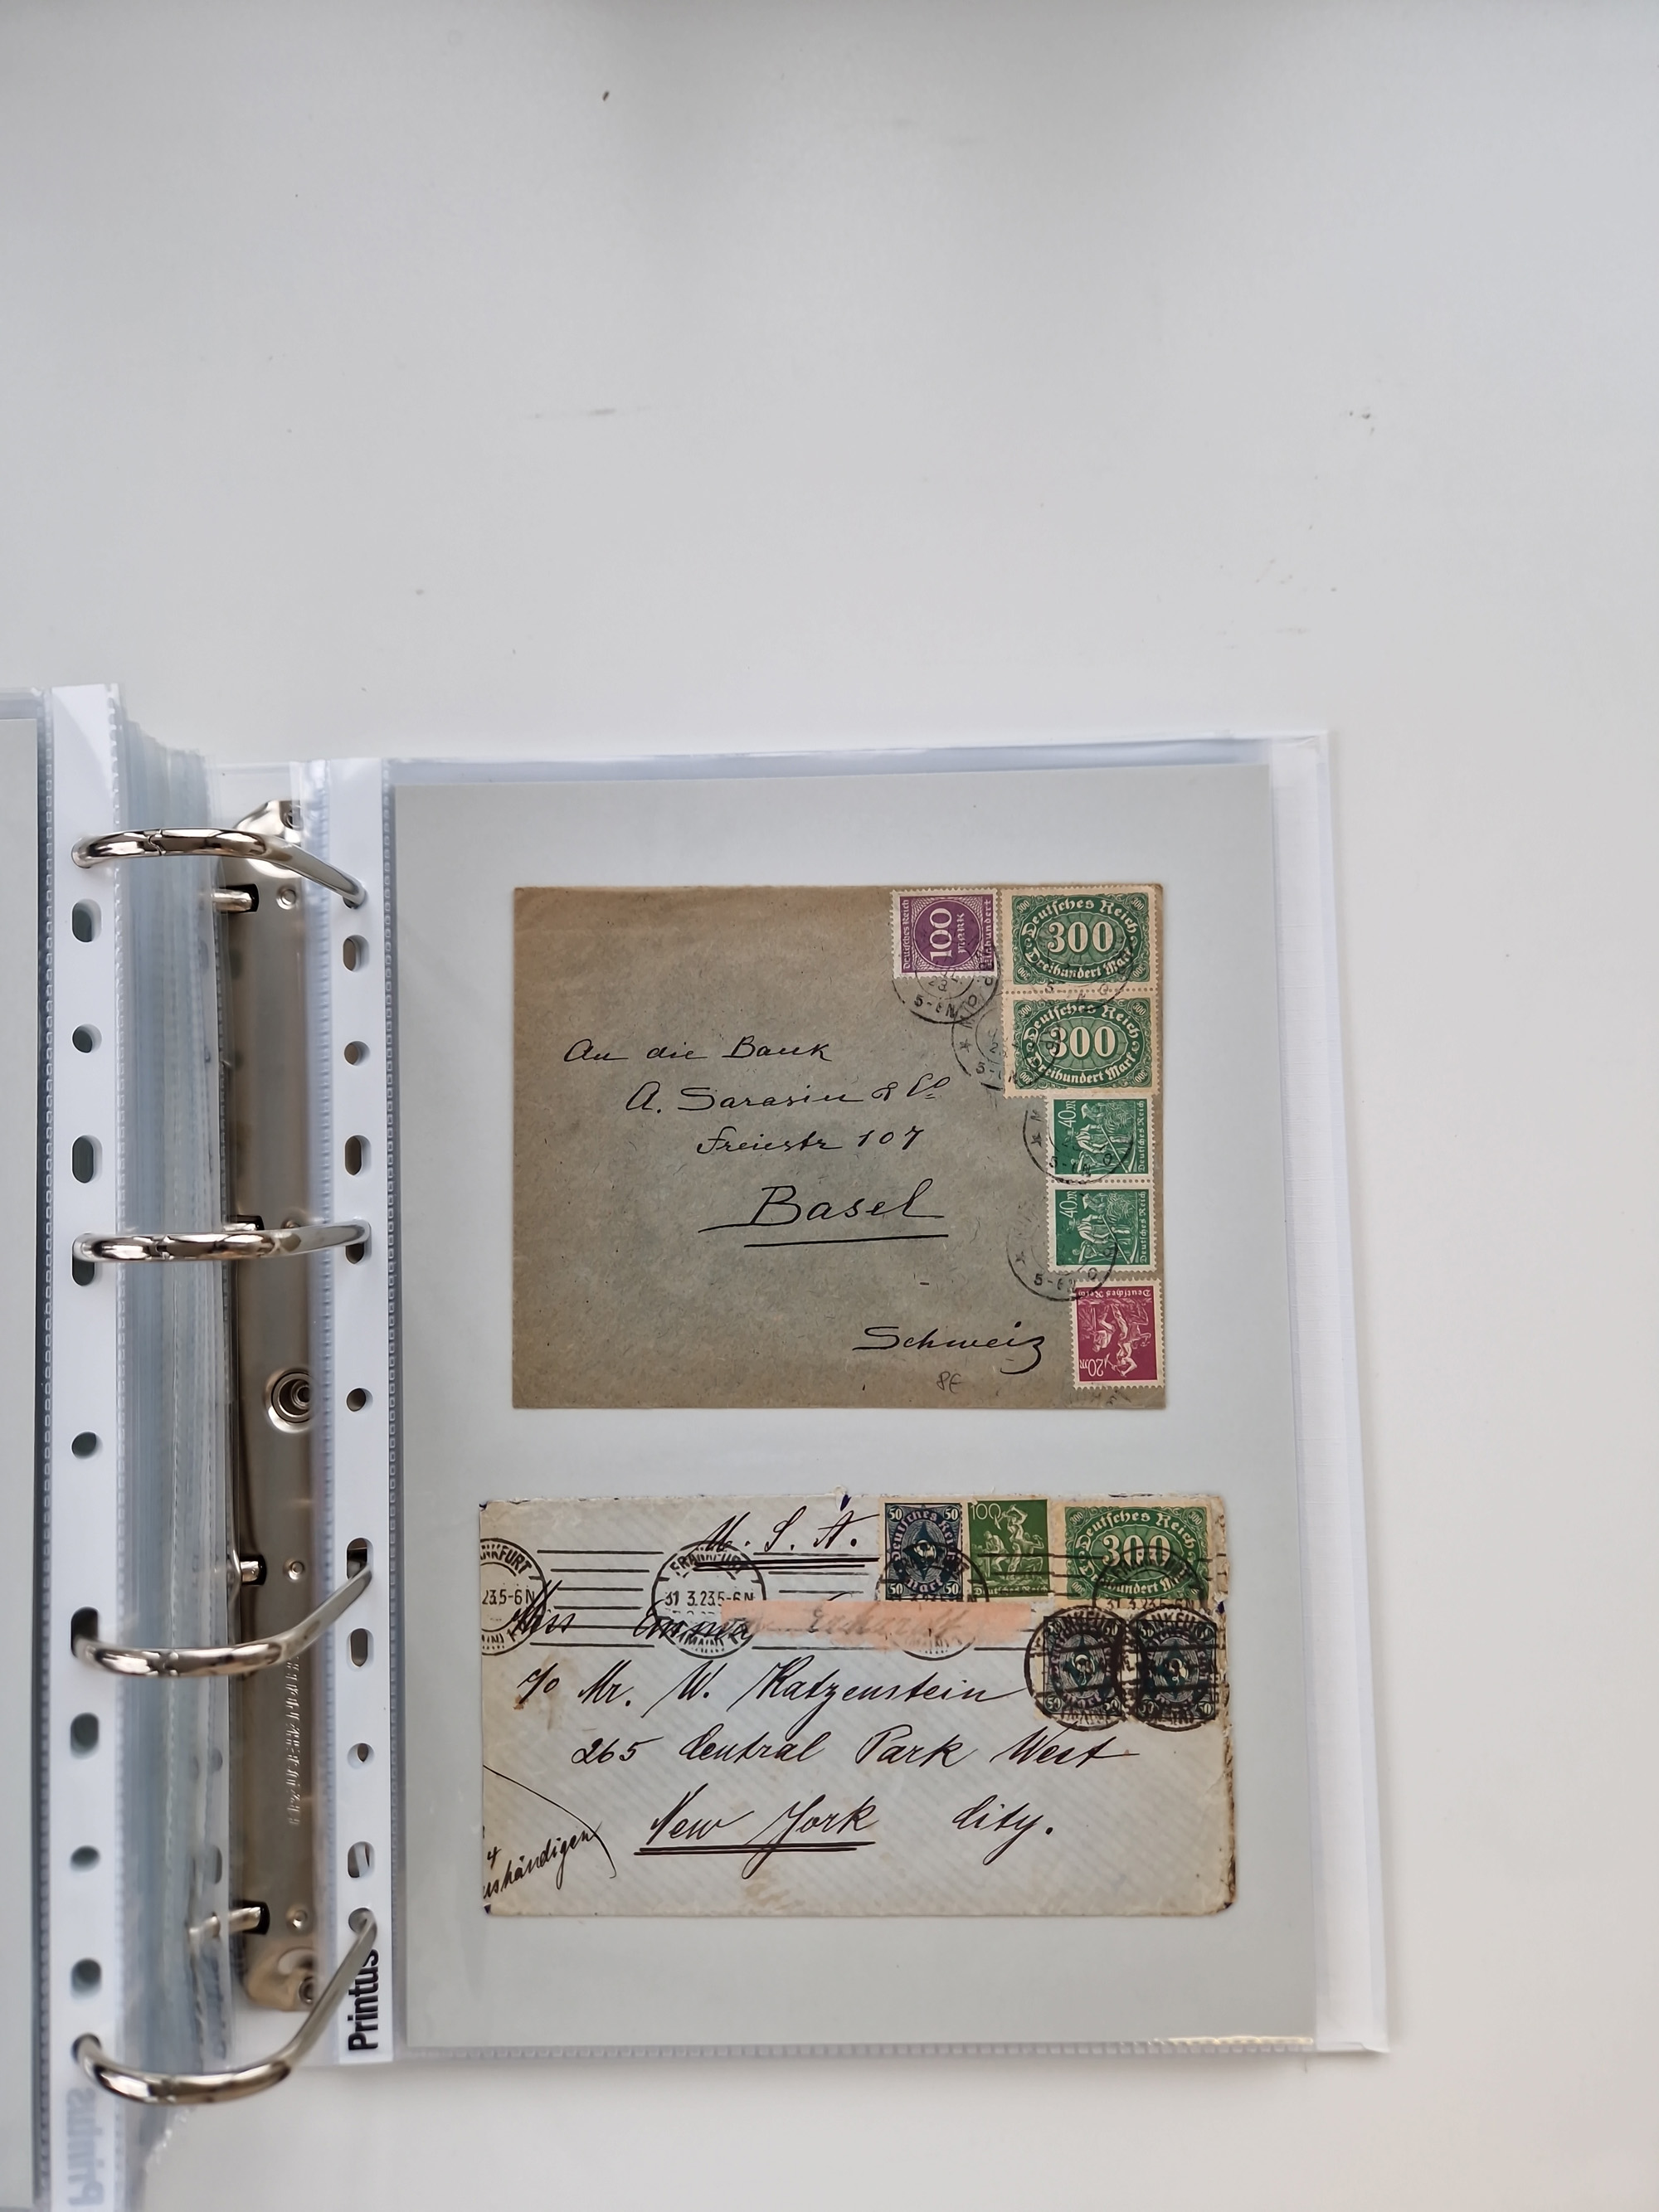 Deutsches Reich
100
MARK
Einhundert
300 300
Deutsches Reich
300
Dreihundert Mark
300
Deutsches Reich
300
Dreihundert Mark
300
5-6N
40M
Deutsches Reich
5-6N
40M
Deutsches Reich
5-6N
20M
Deutsches Reich
An die Bank
A. Sarasin & Co
Freiestr 107
Basel
Schweiz
8€
U. S. A.
50 50
50 50
100
Deutsches Reich
300 300
Deutsches Reich
300
Dreihundert Mark
FRANKFURT
23.5-6N
FRANKFURT
31 3.23.5-6N
(MAIN)
31 3.23.5-6N
Miss Emma
c/o Mr. W. Katzenstein
265 Central Park West
New York City.
4
ushändigen
Printus
Printus